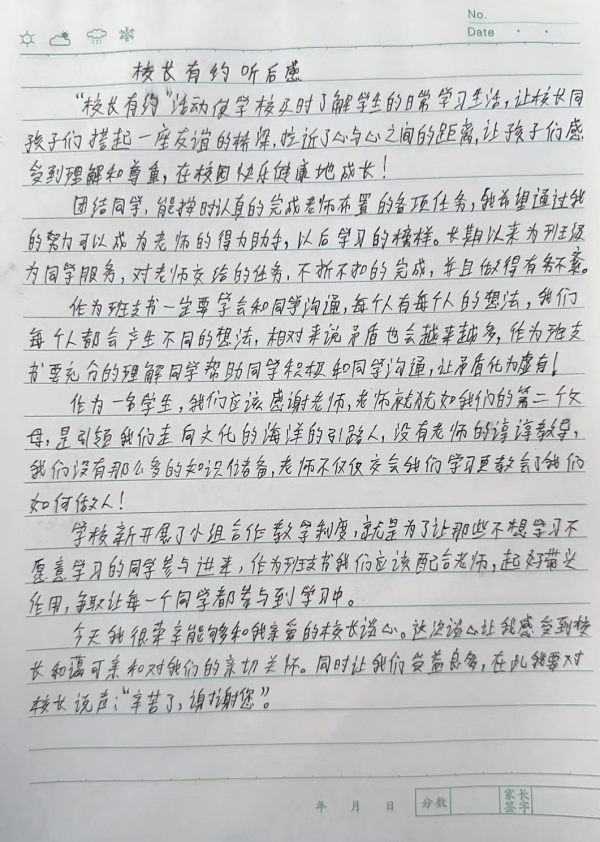 No.
Date
校长有约听后感
"校长有约"活动使学校及时了解学生的日常学习生活,让校长同
孩子们搭起一座友谊的桥梁,拉近了心与心之间的距离,让孩子们感
受到理解和尊重,在校园快乐健康地成长!
团结同学,能按时认真的完成老师布置的各项任务,我希望通过我
的努力可以成为老师的得力助手,以后学习的榜样。长期以来为班级
为同学服务,对老师交给的任务,不折不扣的完成,并且做得有条不紊。
作为班支书一定要学会和同学沟通,每个人有每个人的想法,我们
每个人都会产生不同的想法,相对来说矛盾也会越来越多,作为班支
书要充分的理解同学帮助同学积极和同学沟通,让矛盾化为虚有!
作为一名学生,我们应该感谢老师,老师就犹如我们的第二个父
母,是引领我们走向文化的海洋的引路人,没有老师的谆谆教导,
我们没有那么多的知识储备,老师不仅仅交会我们学习更教会了我们
如何做人!
学校新开展了小组合作教学制度,就是为了让那些不想学习不
愿意学习的同学参与进来,作为班支书我们应该配合老师,起好带头
作用,争取让每一个同学都参与到学习中。
今天我很荣幸能够和我亲爱的校长谈心。这次谈心让我感受到校
长和蔼可亲和对我们的亲切关怀。同时让我们受益良多,在此我要对
校长说声:"辛苦了,谢谢您"。
年 月 日 分数 家长签字